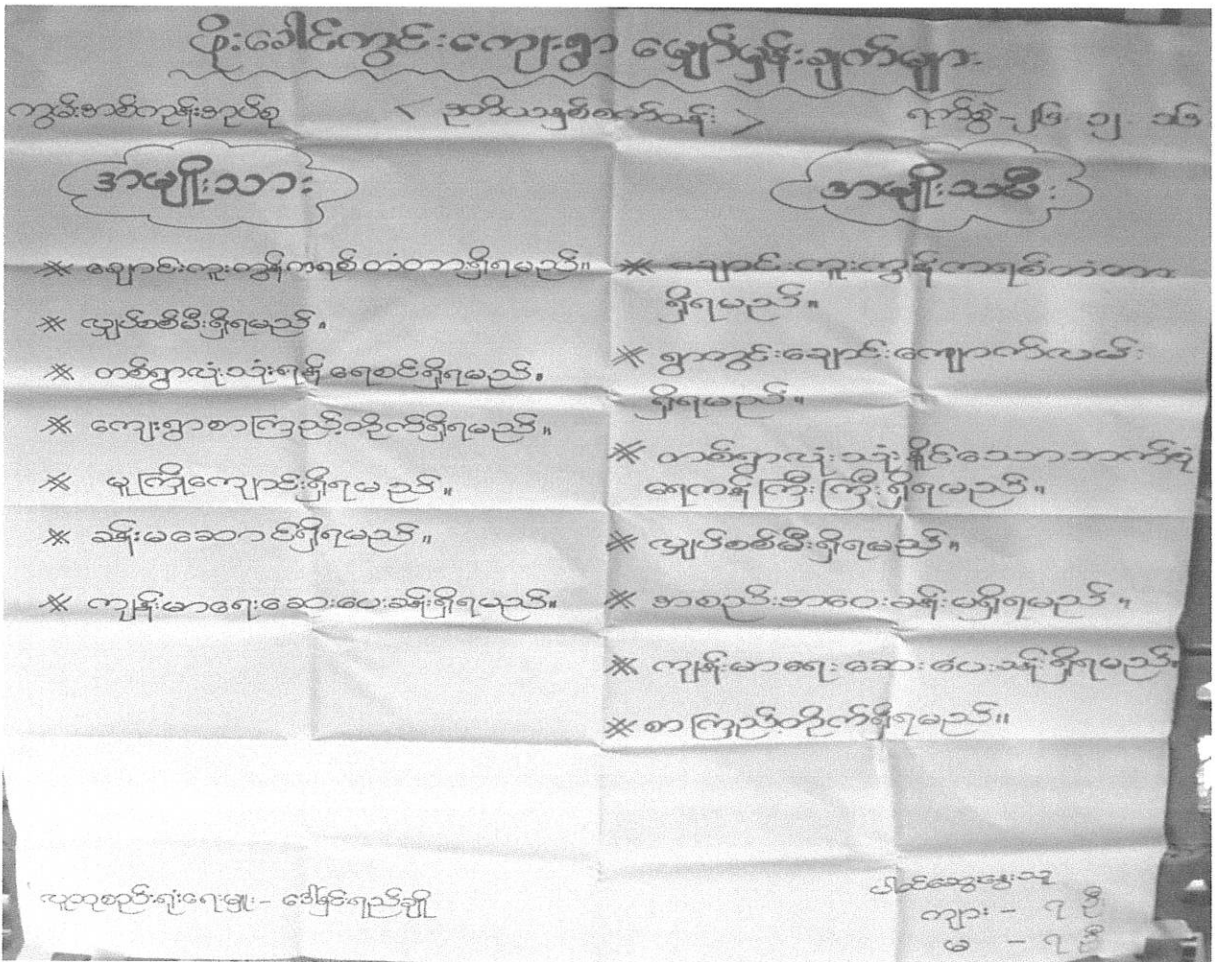 ပိုးခေါင်ကွင်းကျေးရွာ မျှော်မှန်းချက်များ
ကွမ်းအစ်ကုန်းအုပ်စု < ဒုတိယနှစ်စက်ဝန်း > ရက်စွဲ-၂၆. ၁၂. ၁၆
အမျိုးသား
※ ချောင်းကူးကွန်ကရစ်တံတာရှိရမည်။
※ လျှပ်စစ်မီးရှိရမည်။
※ တစ်ရွာလုံးသုံးရန် ရေစင်ရှိရမည်။
※ ကျေးရွာစာကြည့်တိုက်ရှိရမည်။
※ မူကြိုကျောင်းရှိရမည်။
※ ခန်းမဆောင်ရှိရမည်။
※ ကျန်းမာရေးဆေးပေးခန်းရှိရမည်။
အမျိုးသမီး
※ ချောင်းကူးကွန်ကရစ်တံတား
ရှိရမည်။
※ ရွာတွင်းချောင်းကျောက်လမ်း
ရှိရမည်။
※ တစ်ရွာလုံးသုံးနိုင်သောဘက်စုံ
ရေကန်ကြီးကြီးရှိရမည်။
※ လျှပ်စစ်မီးရှိရမည်။
※ အစည်းအဝေးခန်းမရှိရမည်။
※ ကျန်းမာရေးဆေးပေးခန်းရှိရမည်။
※ စာကြည့်တိုက်ရှိရမည်။
လူထုစည်းရုံးရေးမှူး - ဒေါ်ခိုင်ရည်ချို
ပါဝင်ဆွေးနွေးသူ
ကျား - ၇ ဦး
မ - ၇ ဦး